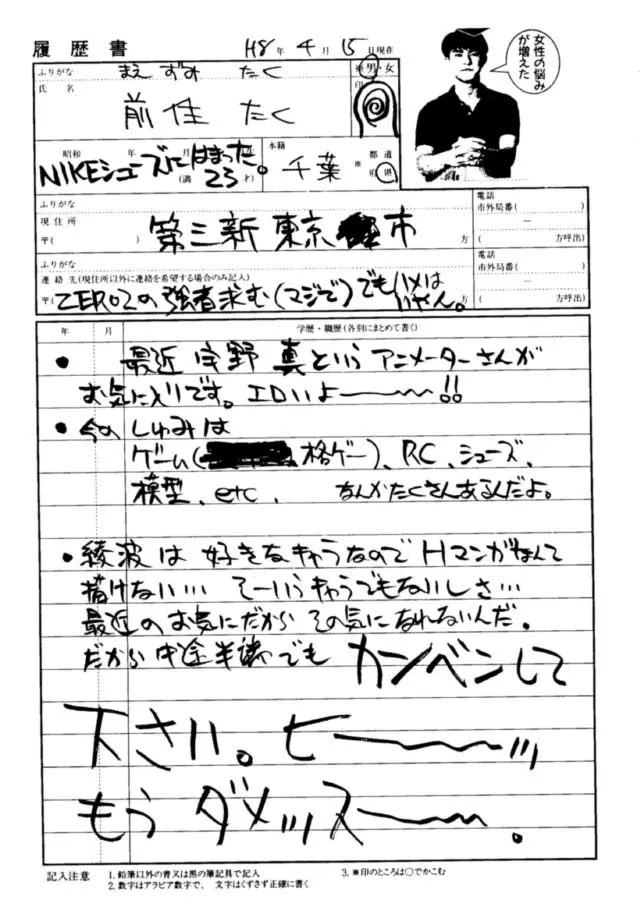 履歴書
H8年 4月 15日現在
女性の悩み
が増えた
ふりがな まえ ずみ たく
※ 男・女
氏名 前住 たく
印
昭和 年 月
NIKEシューズにはまった。
(満 23才)
本籍 千葉 ※ 都道府県
ふりがな
現住所 第三新東京市
〒( ) 方
電話
市外局番( )
―
( 方呼出)
ふりがな
連絡先(現住所以外に連絡を希望する場合のみ記入)
〒ZERO2の強者求む(マジで)でもハメはいやん。
方
電話
市外局番( )
―
( 方呼出)
年 月 学歴・職歴(各別にまとめて書く)
・最近 宇野 真というアニメーターさんが
お気に入りです。エロいよ〜〜!!
・今の しゅみは
ゲーム( 格ゲー)、RC、シューズ、
模型、etc、 なんかたくさんあるんだよ。
・綾波は 好きなきゃらなので Hマンガなんて
描けない… そーいうきゃらでもないしさ…
最近の お気にだから その気に なれないんだ。
だから 中途半端でも カンベンして
下さい。ヒー〜〜ッ
もう ダメッスー〜。
記入注意
1.鉛筆以外の青又は黒の筆記具で記入
2.数字はアラビア数字で、文字はくずさず正確に書く
3.※印のところは○でかこむ